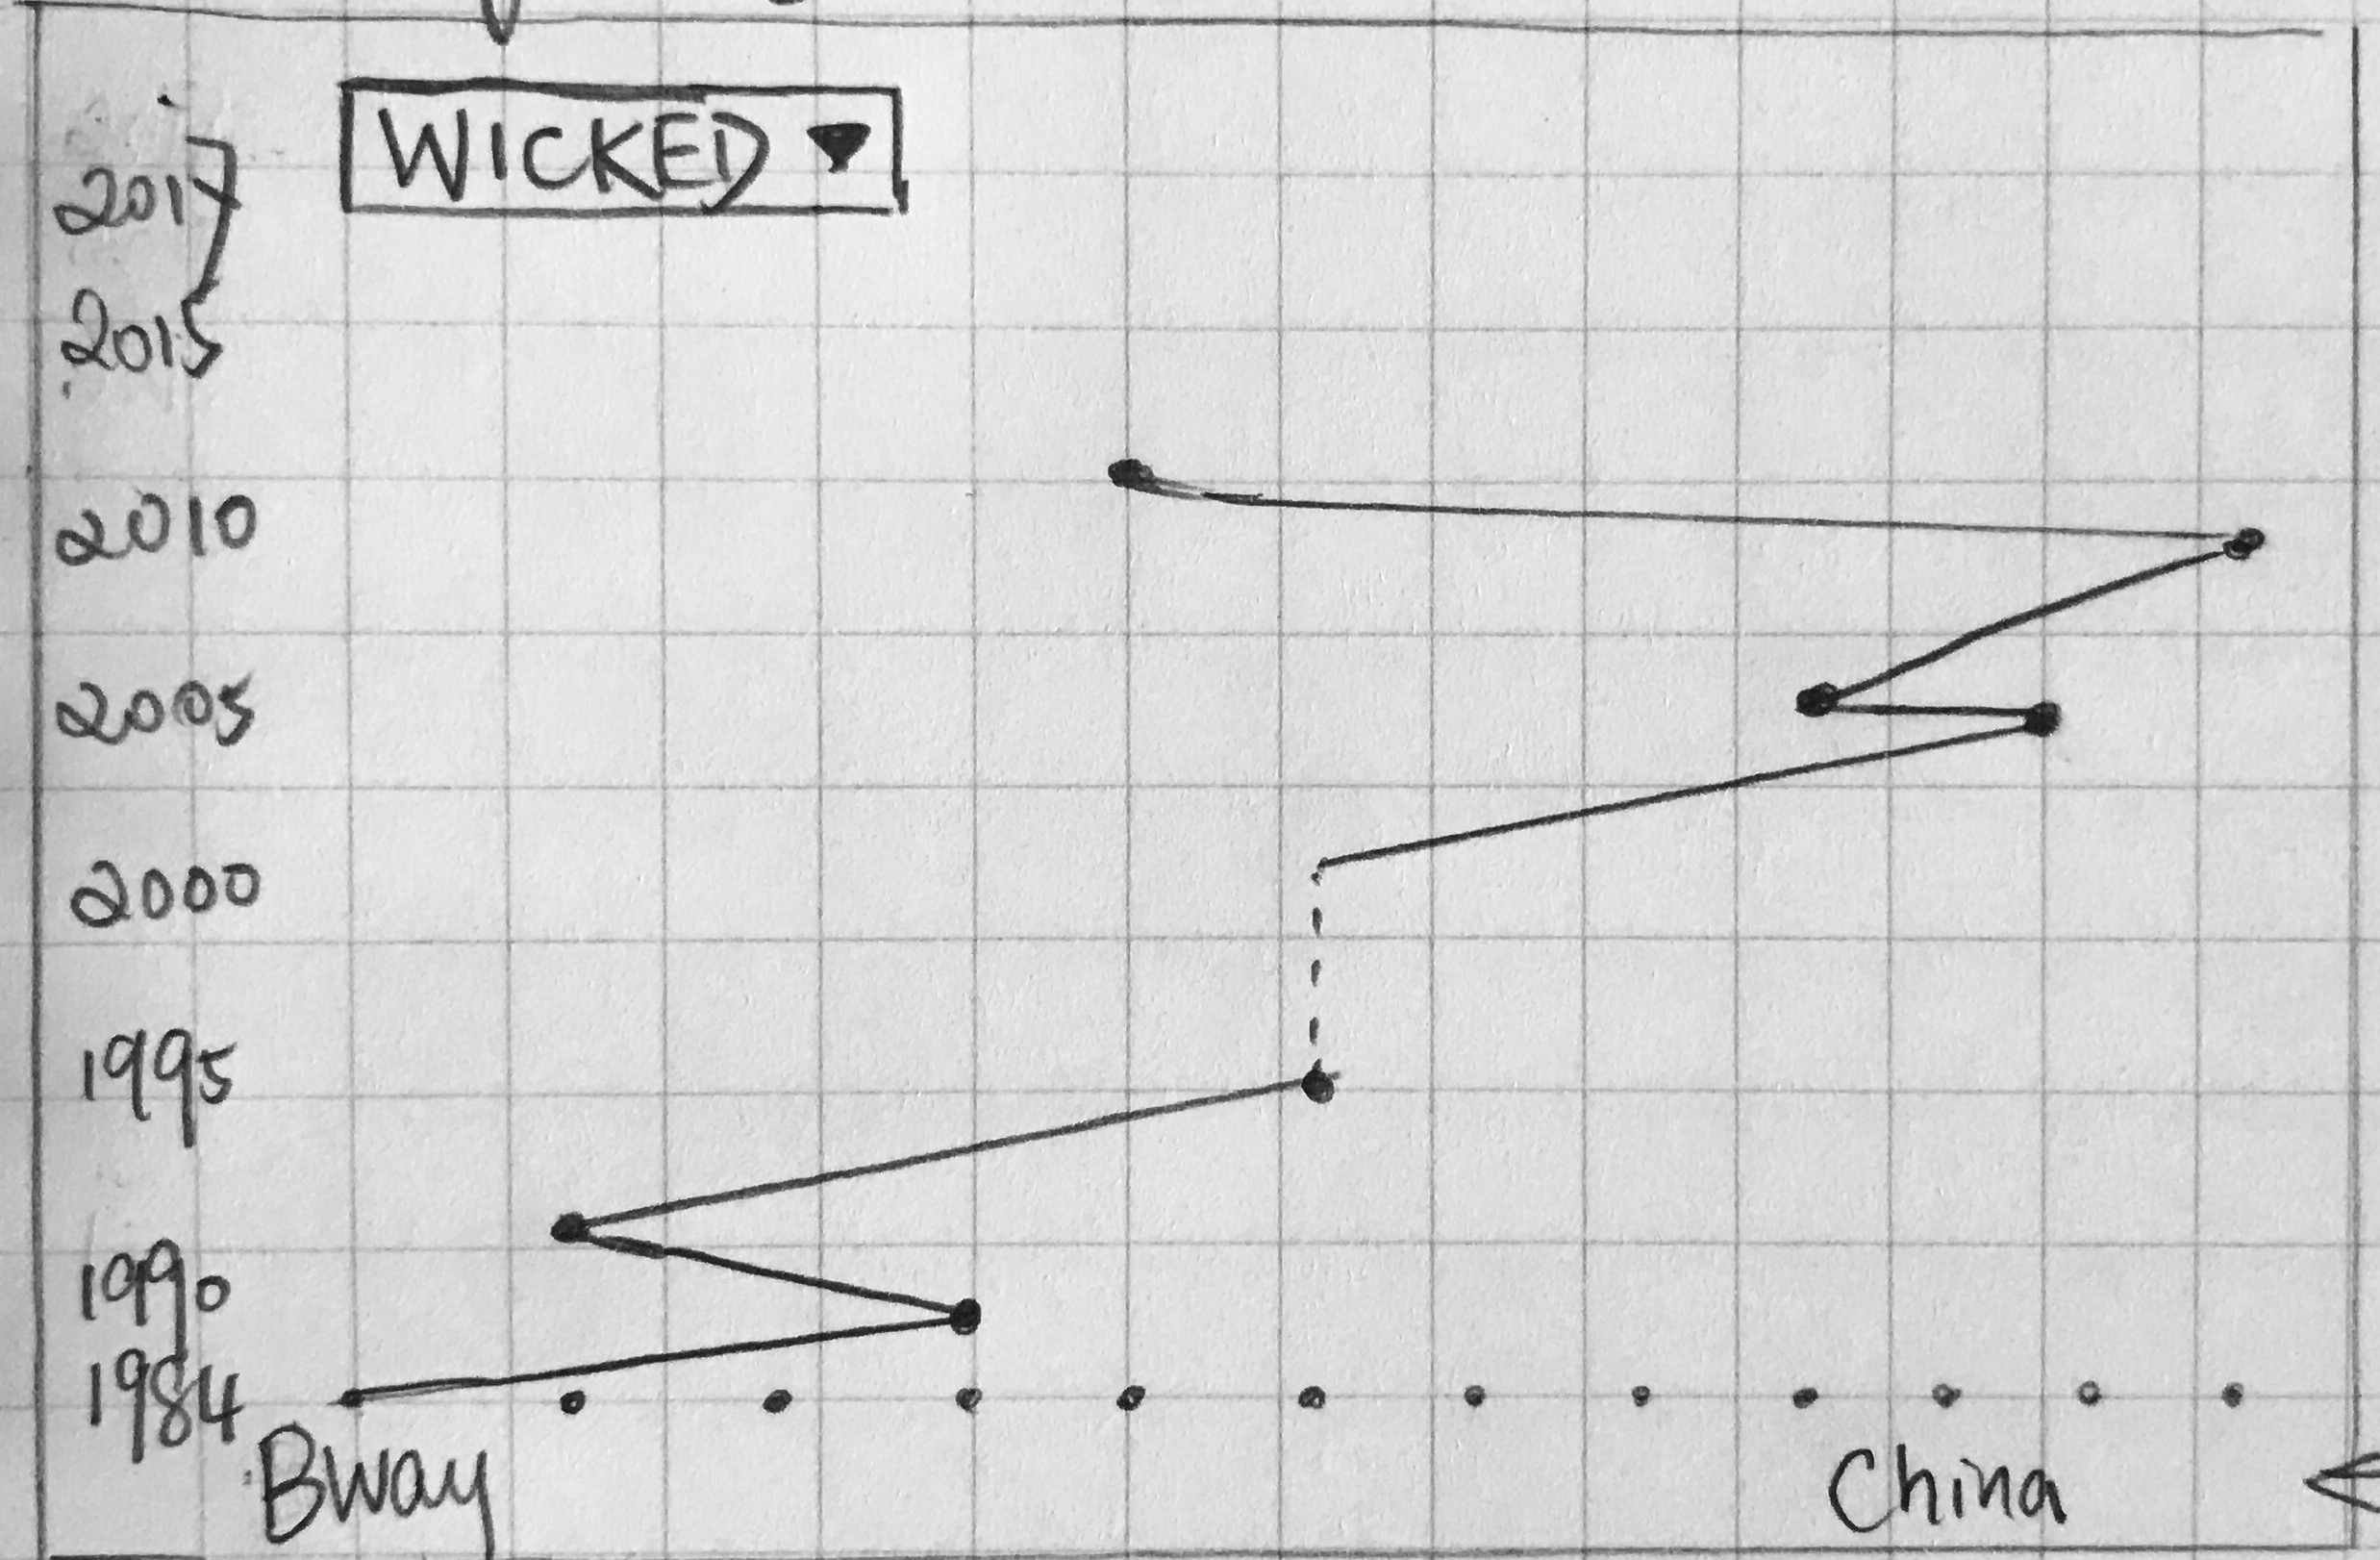 WICKED
2017
2015
2010
2005
2000
1995
1990
1984
Bway
China